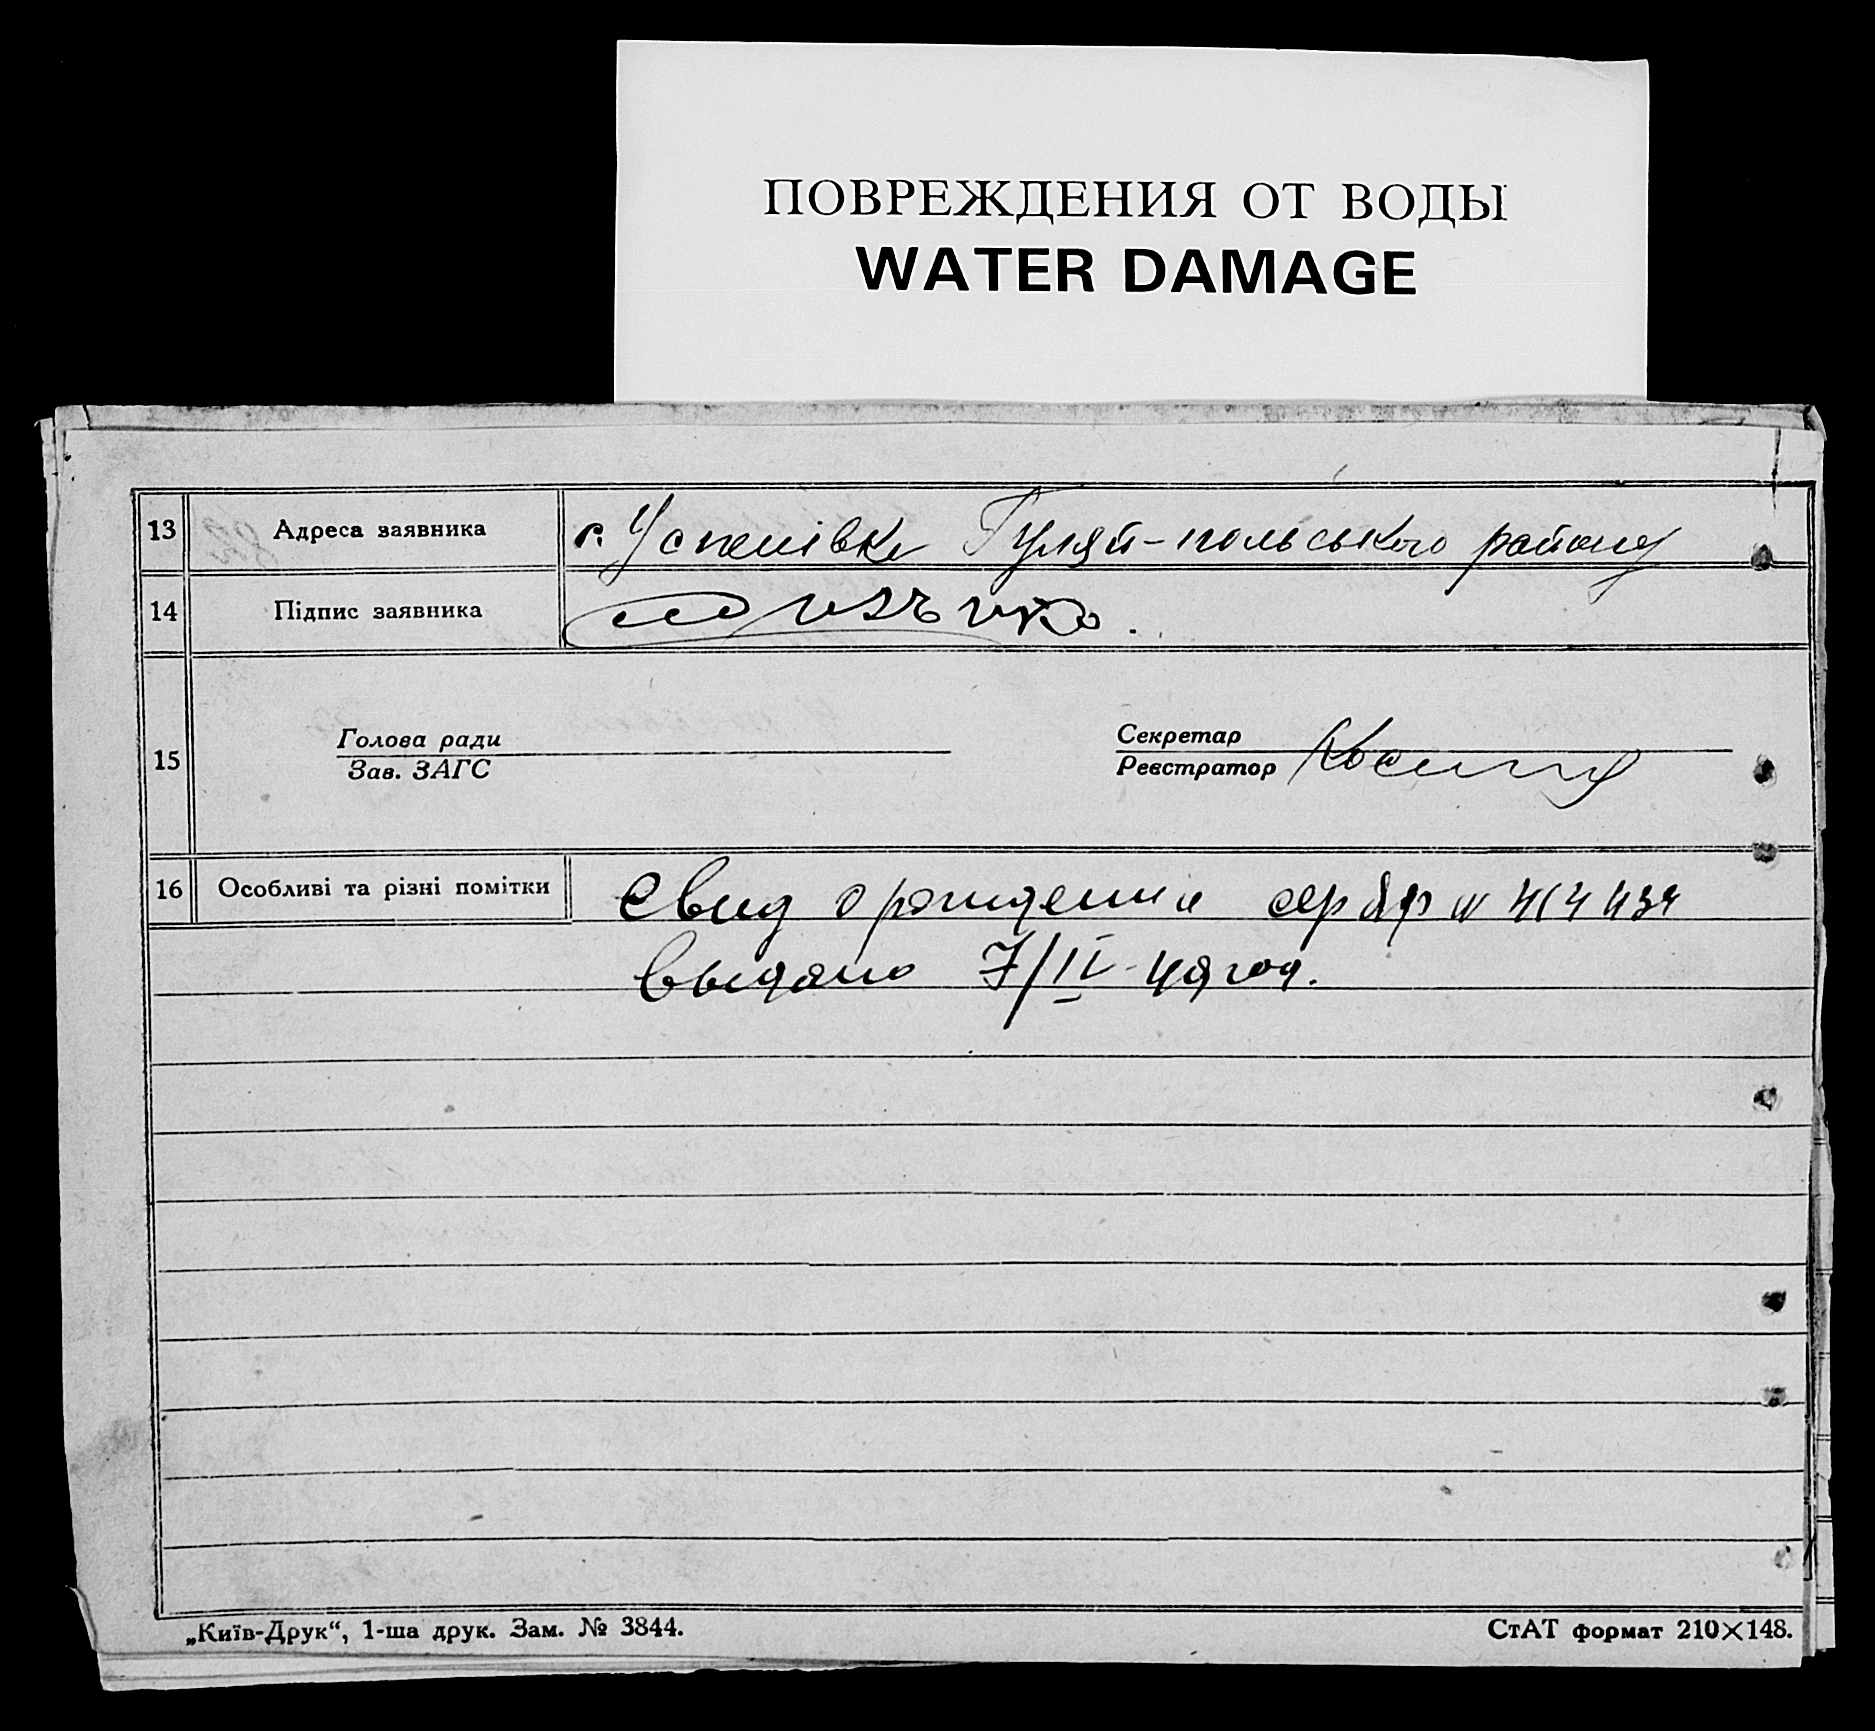 ПОВРЕЖДЕНИЯ ОТ ВОДЫ
WATER DAMAGE
13 Адреса заявника с. Успенівка Гуляй-польського району
14 Підпис заявника
15 Голова ради
Зав. ЗАГС
Секретар
Реєстратор
16 Особливі та різні помітки Свид о рождении сер № 414434
выдано 7/IV-49 год.
„Київ-Друк“, 1-ша друк. Зам. № 3844.
СтАТ формат 210×148.